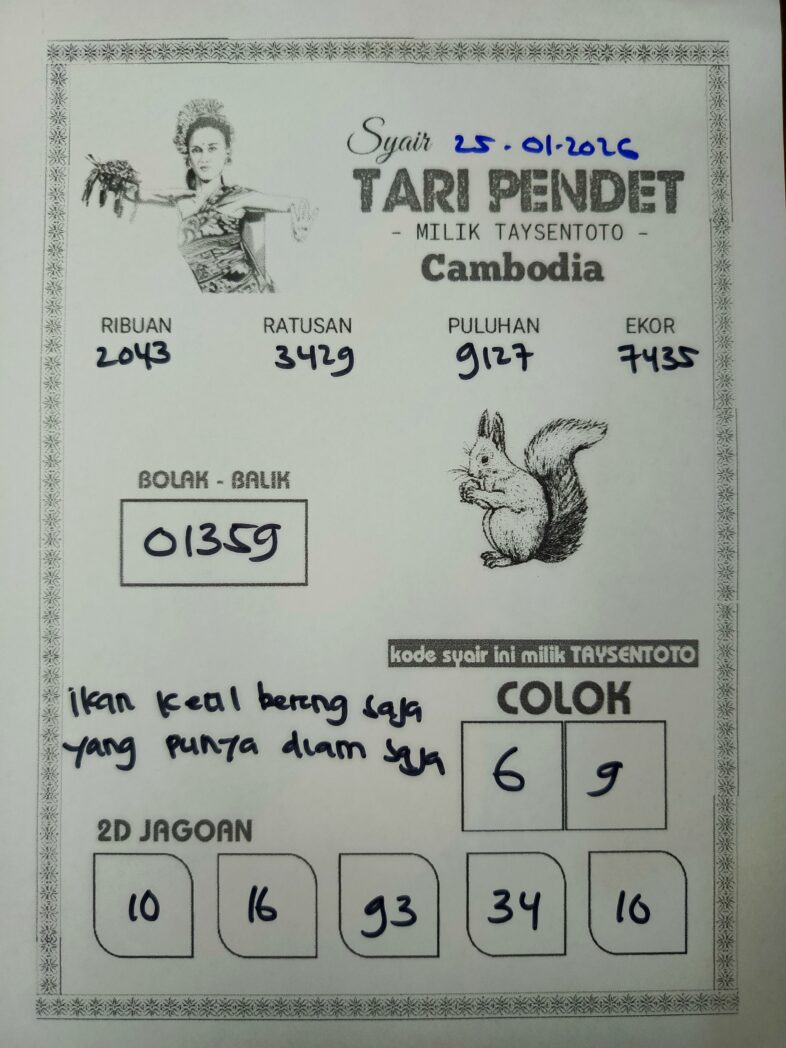 Syair 25.01.2026
TARI PENDET
- MILIK TAYSENTOTO -
Cambodia
RIBUAN RATUSAN PULUHAN EKOR
2043 3429 9127 7435
BOLAK - BALIK
01359
kode syair ini milik TAYSENTOTO
ikan kecil bereng saja
yang punya diam saja
COLOK
6 9
2D JAGOAN
10 16 93 34 10